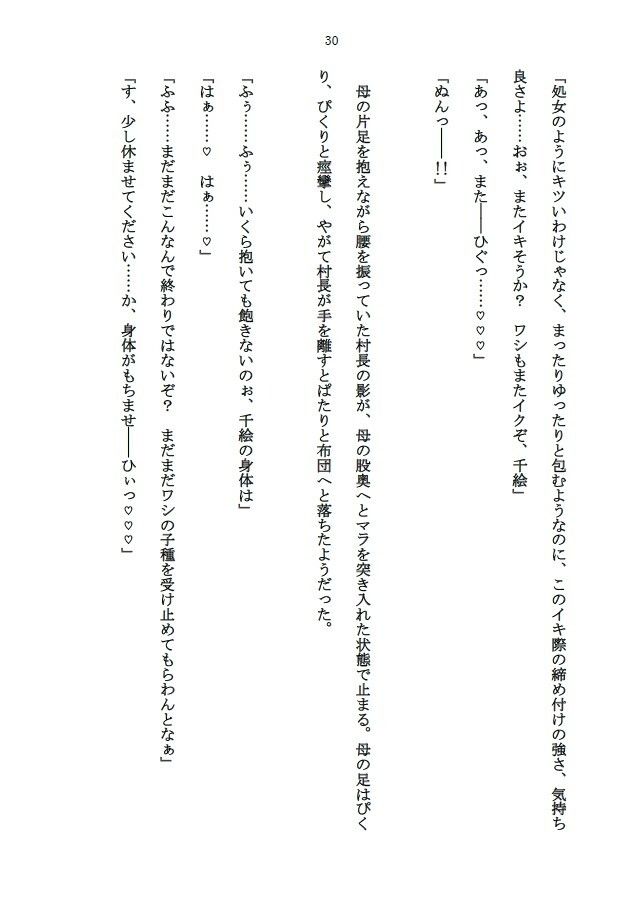 30
「処女のようにキツいわけじゃなく、まったりゆったりと包むようなのに、このイキ際の締め付けの強さ、気持ち
良さよ……おぉ、またイキそうか？　ワシもまたイクぞ、千絵」
「あっ、あっ、また――ひぐっ……♡♡♡」
「ぬんっ――!!」
母の片足を抱えながら腰を振っていた村長の影が、母の股奥へとマラを突き入れた状態で止まる。母の足はぴく
り、ぴくりと痙攣し、やがて村長が手を離すとぱたりと布団へと落ちたようだった。
「ふぅ……ふぅ……いくら抱いても飽きないのぉ、千絵の身体は」
「はぁ……♡　はぁ……♡」
「ふふ……まだまだこんなんで終わりではないぞ？　まだまだワシの子種を受け止めてもらわんとなぁ」
「す、少し休ませてください……か、身体がもちませ――ひぃっ♡♡♡」